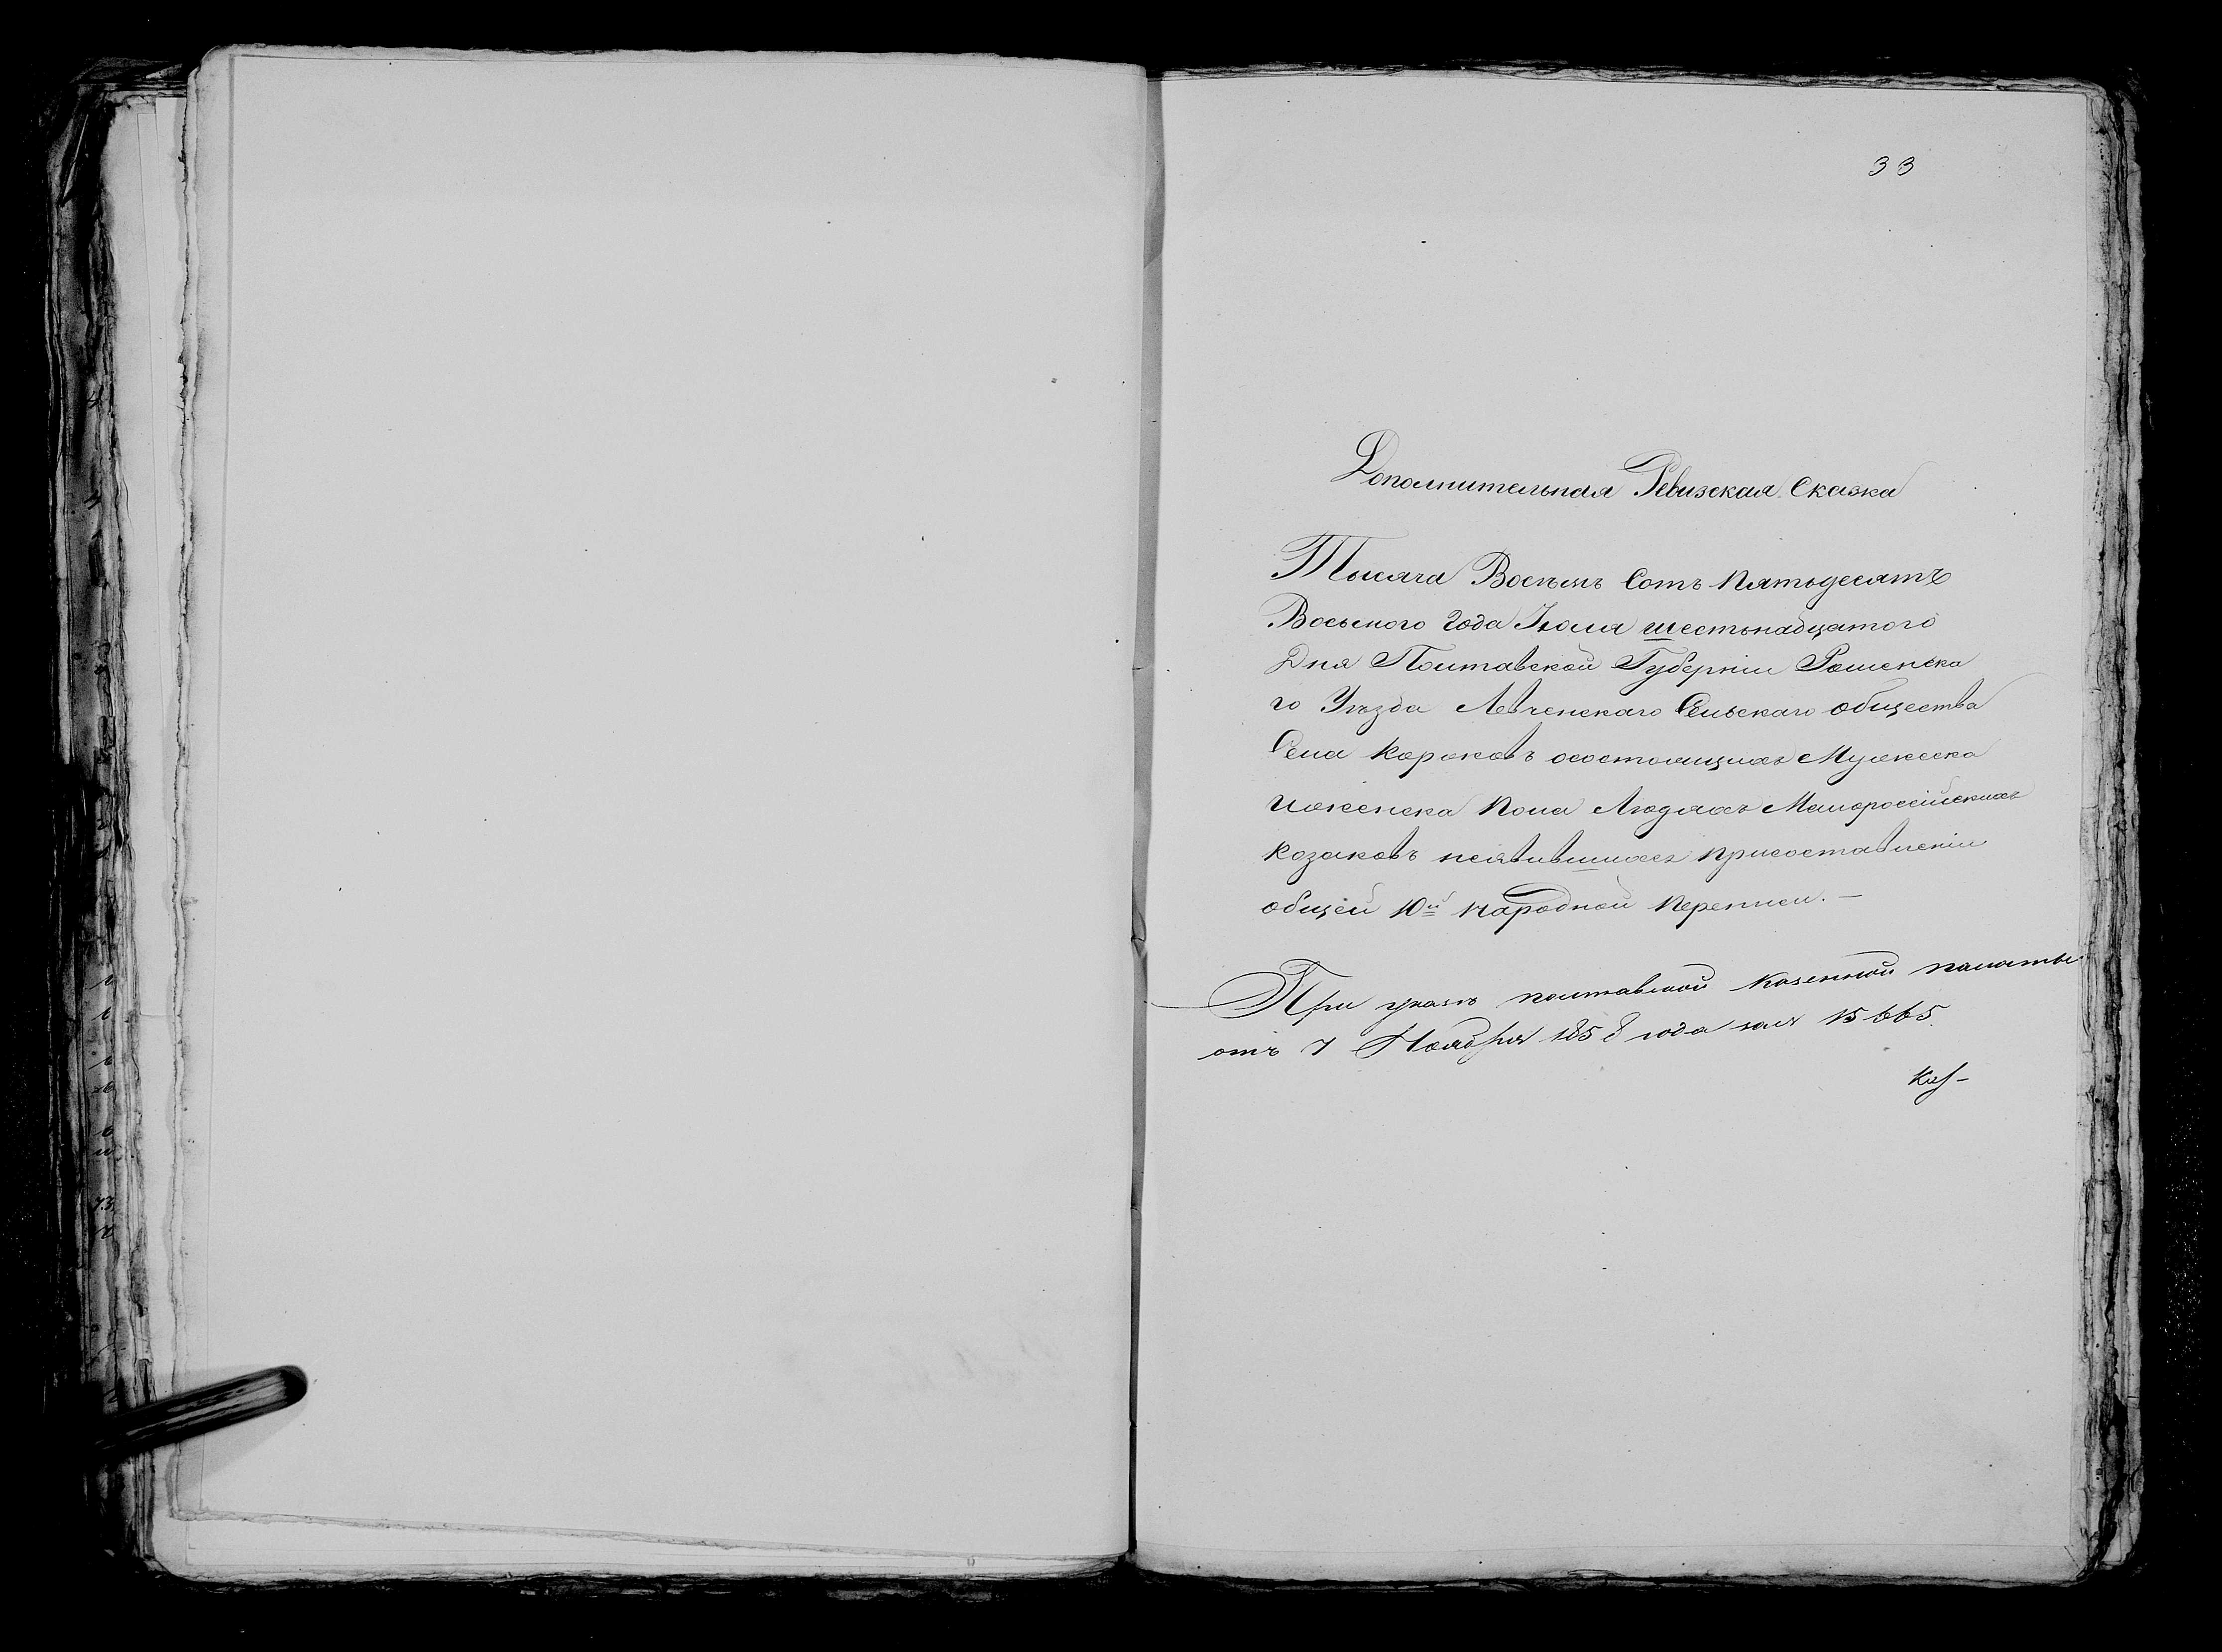 33
Дополнительная Ревизская Сказка
Тысяча Восемь Сотъ пятьдесятъ
Восьмого года Іюля шестьнадцатого
Дня Полтавской Губерніи Роменска
го Уѣзда Левченскаго Сельскаго общества
Села Коровковъ осостоящихъ Мужеска
иженска пола Людяхъ Малороссійскихъ
козаковъ неявившихся присоставленіи
общей 10й народной переписи. —
При указѣ полтавской казенной палаты
отъ 7 Ноября 1858 года за№ 15665.